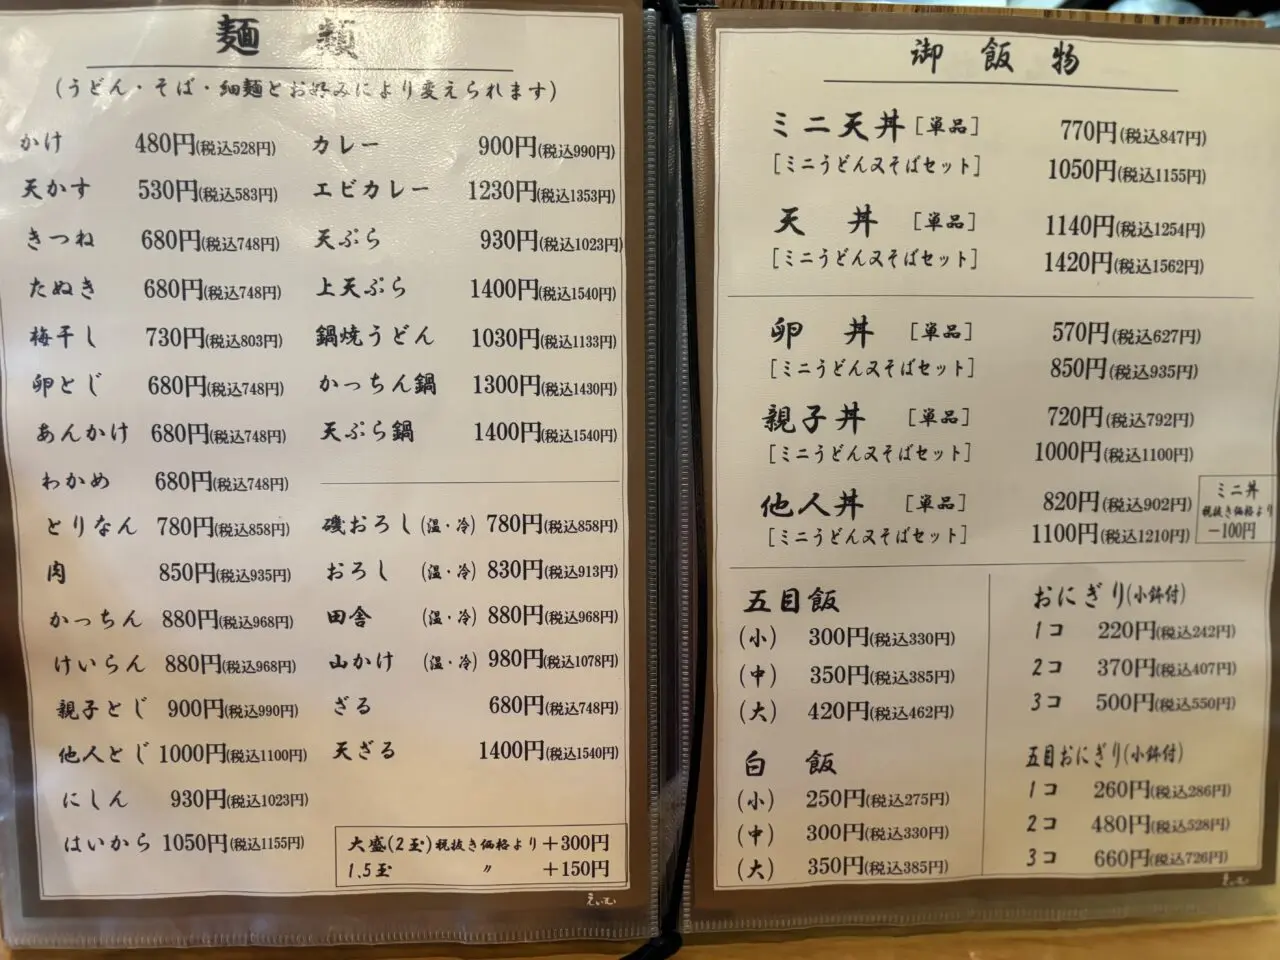 麺 類
(うどん・そば・細麺とお好みにより変えられます)
かけ 480円(税込528円)
天かす 530円(税込583円)
きつね 680円(税込748円)
たぬき 680円(税込748円)
梅干し 730円(税込803円)
卵とじ 680円(税込748円)
あんかけ 680円(税込748円)
わかめ 680円(税込748円)
とりなん 780円(税込858円)
肉 850円(税込935円)
かっちん 880円(税込968円)
けいらん 880円(税込968円)
親子とじ 900円(税込990円)
他人とじ 1000円(税込1100円)
にしん 930円(税込1023円)
はいから 1050円(税込1155円)
カレー 900円(税込990円)
エビカレー 1230円(税込1353円)
天ぷら 930円(税込1023円)
上天ぷら 1400円(税込1540円)
鍋焼うどん 1030円(税込1133円)
かっちん鍋 1300円(税込1430円)
天ぷら鍋 1400円(税込1540円)
磯おろし(温・冷) 780円(税込858円)
おろし (温・冷) 830円(税込913円)
田舎 (温・冷) 880円(税込968円)
山かけ (温・冷) 980円(税込1078円)
ざる 680円(税込748円)
天ざる 1400円(税込1540円)
大盛(2玉)税抜き価格より+300円
1.5玉 〃 +150円
えいむ
御 飯 物
ミニ天丼[単品] 770円(税込847円)
[ミニうどん又そばセット] 1050円(税込1155円)
天 丼 [単品] 1140円(税込1254円)
[ミニうどん又そばセット] 1420円(税込1562円)
卵 丼 [単品] 570円(税込627円)
[ミニうどん又そばセット] 850円(税込935円)
親子丼 [単品] 720円(税込792円)
[ミニうどん又そばセット] 1000円(税込1100円)
他人丼 [単品] 820円(税込902円)
[ミニうどん又そばセット] 1100円(税込1210円)
ミニ丼
税抜き価格より
-100円
五目飯
(小) 300円(税込330円)
(中) 350円(税込385円)
(大) 420円(税込462円)
白 飯
(小) 250円(税込275円)
(中) 300円(税込330円)
(大) 350円(税込385円)
おにぎり(小鉢付)
1コ 220円(税込242円)
2コ 370円(税込407円)
3コ 500円(税込550円)
五目おにぎり(小鉢付)
1コ 260円(税込286円)
2コ 480円(税込528円)
3コ 660円(税込726円)
えいむ